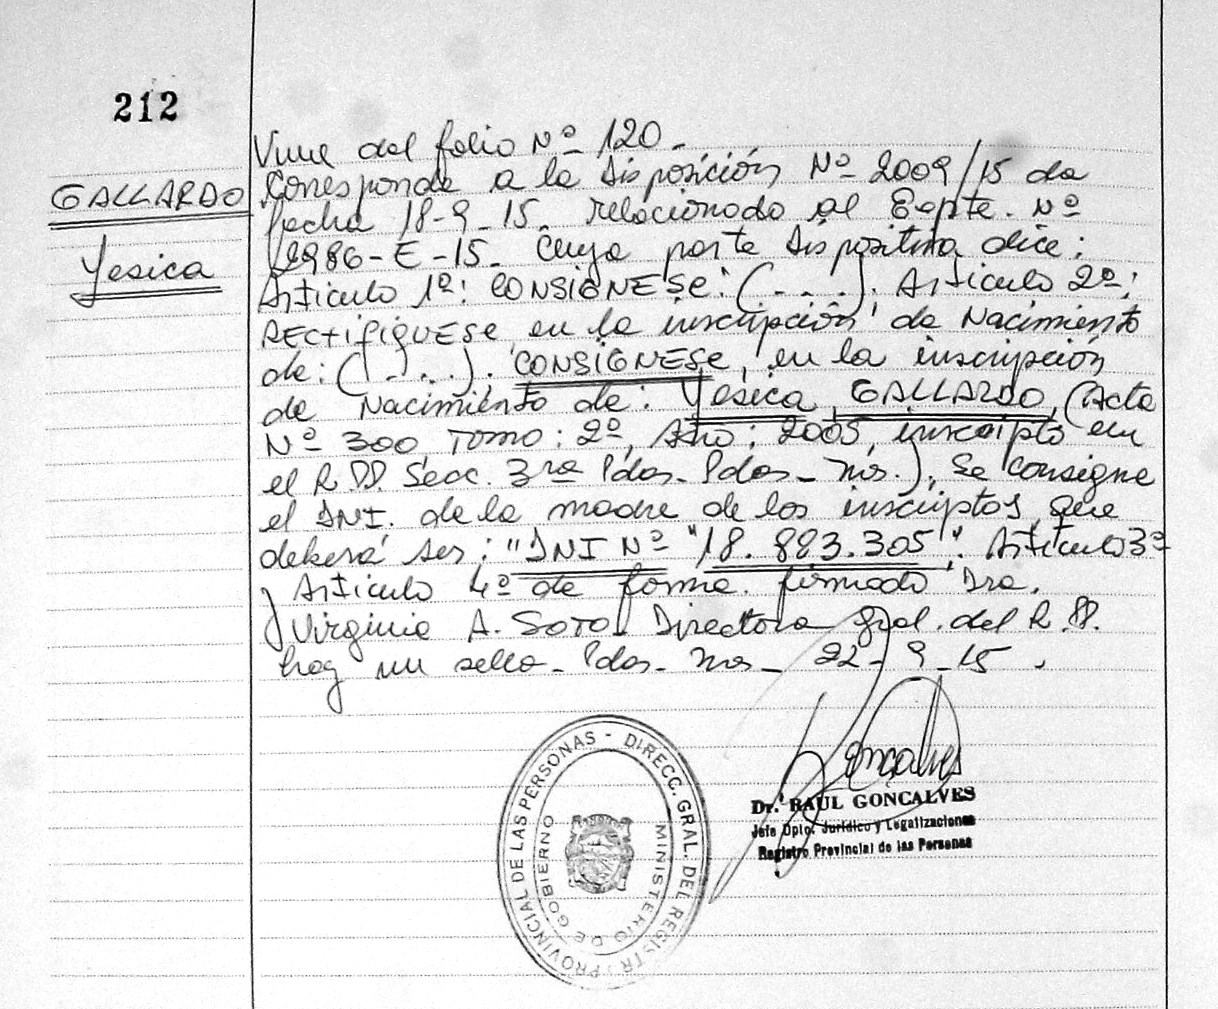 212
GALLARDO
Yesica
Viene del folio Nº 120.
Corresponde a la disposición Nº 2009/15 de
fecha 18-9-15. relacionado al Expte. Nº
2986-E-15. Cuya parte dispositiva dice:
Artículo 1º: CONSIGNESE: (....). Artículo 2º:
RECTIFIQUESE en la inscripción de Nacimiento
de: (....). CONSIGNESE, en la inscripción
de Nacimiento de: Yesica GALLARDO, (Acta
Nº 300, Tomo: 2º, Año: 2005, inscripto en
el R.PP. Secc. 3ra Pdas. Pdas - Mns.), Se consigne
el DNI. de la madre de los inscriptos, que
deberá ser: "DNI Nº "18.823.305". Artículo 3º
y Artículo 4º de forma. firmado Dra.
Virginia A. SOTO Directora Gral. del R.PP.
hay un sello - Pdas. Mns - 22-9-15.
Goncalves
Dr. RAUL GONCALVES
Jefe Dpto. Jurídico y Legalizaciones
Registro Provincial de las Personas
DIRECC. GRAL. DEL REGISTR. PROVINCIAL DE LAS PERSONAS -
MINISTERIO DE GOBIERNO